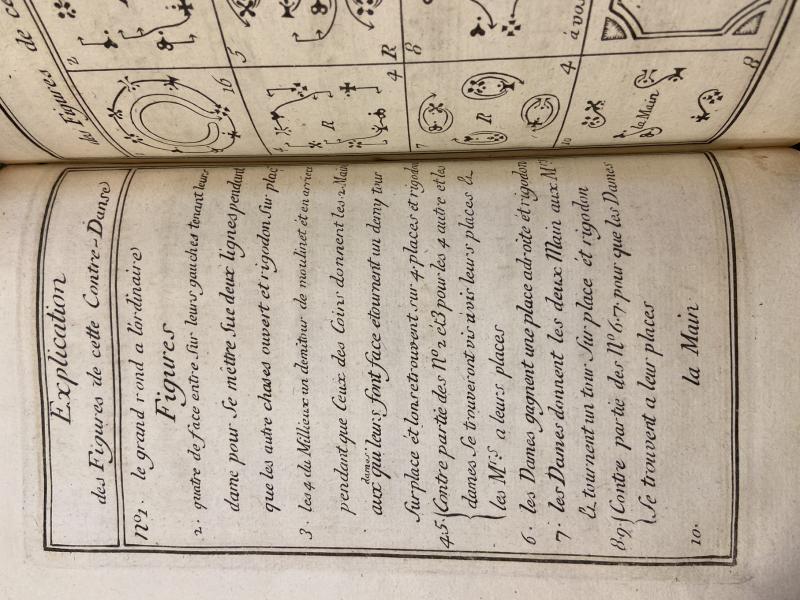 Explication
des Figures de cette Contre-Danse
nº1. le grand rond a lordinaire
Figures
2. quatre de face entre sur leurs gauches tenant leurs
dame pour se mettre sue deux lignes pendant
que les autre chases ouvert et rigodon sur plac
3. les 4 du Millieux un demitour de moulinet et en arriere
pendant que Ceux des Coins donnent les 2 Main
dames
aux qui leurs font face etournent un demy tour
sur place et lonsetrouvent sur 4 places et rigodon
4.5. Contre partie des Nº 2 et 3 pour les 4 autre et les
dames se trouveront vis a vis leurs places &
les Mrs a leurs places
6. les Dames gagnent une place adroite et rigodon
7. les Dames donnent les deux Main aux Mrs
& tournent un tour sur place et rigodon
8.9. Contre partie des Nº 6.7. pour que les Dames
se trouvent a leur places
10. la Main
des Figures de ce
2
3
R
8
à vos
16
4
R
4
7
R
4
10
la Main
8